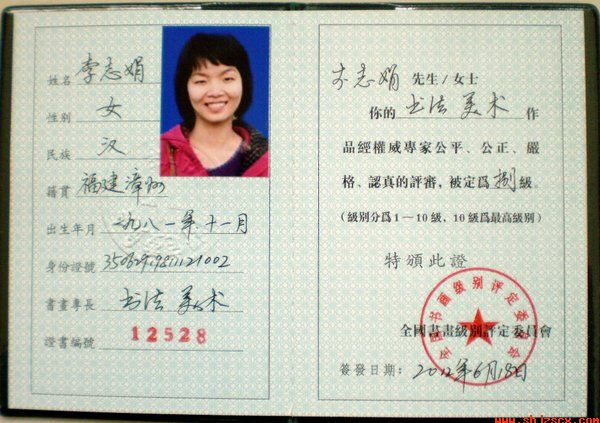 姓名 李志娟
性别 女
民族 汉
籍貫 福建漳州
出生年月 一九八一年.十一月
身份證號
書畫專長 书法 美术
證書編號 12528
李志娟 先生/女士
你的 书法 美术 作
品經權威專家公平、公正、嚴
格、認真的評審，被定爲 捌 級。
(級別分爲1—10級，10級爲最高級別)
特頒此證
全國書畫級别評定委員會
全国书画级别评定委员会
簽發日期：2012年6月18日
www.shjzscx.com